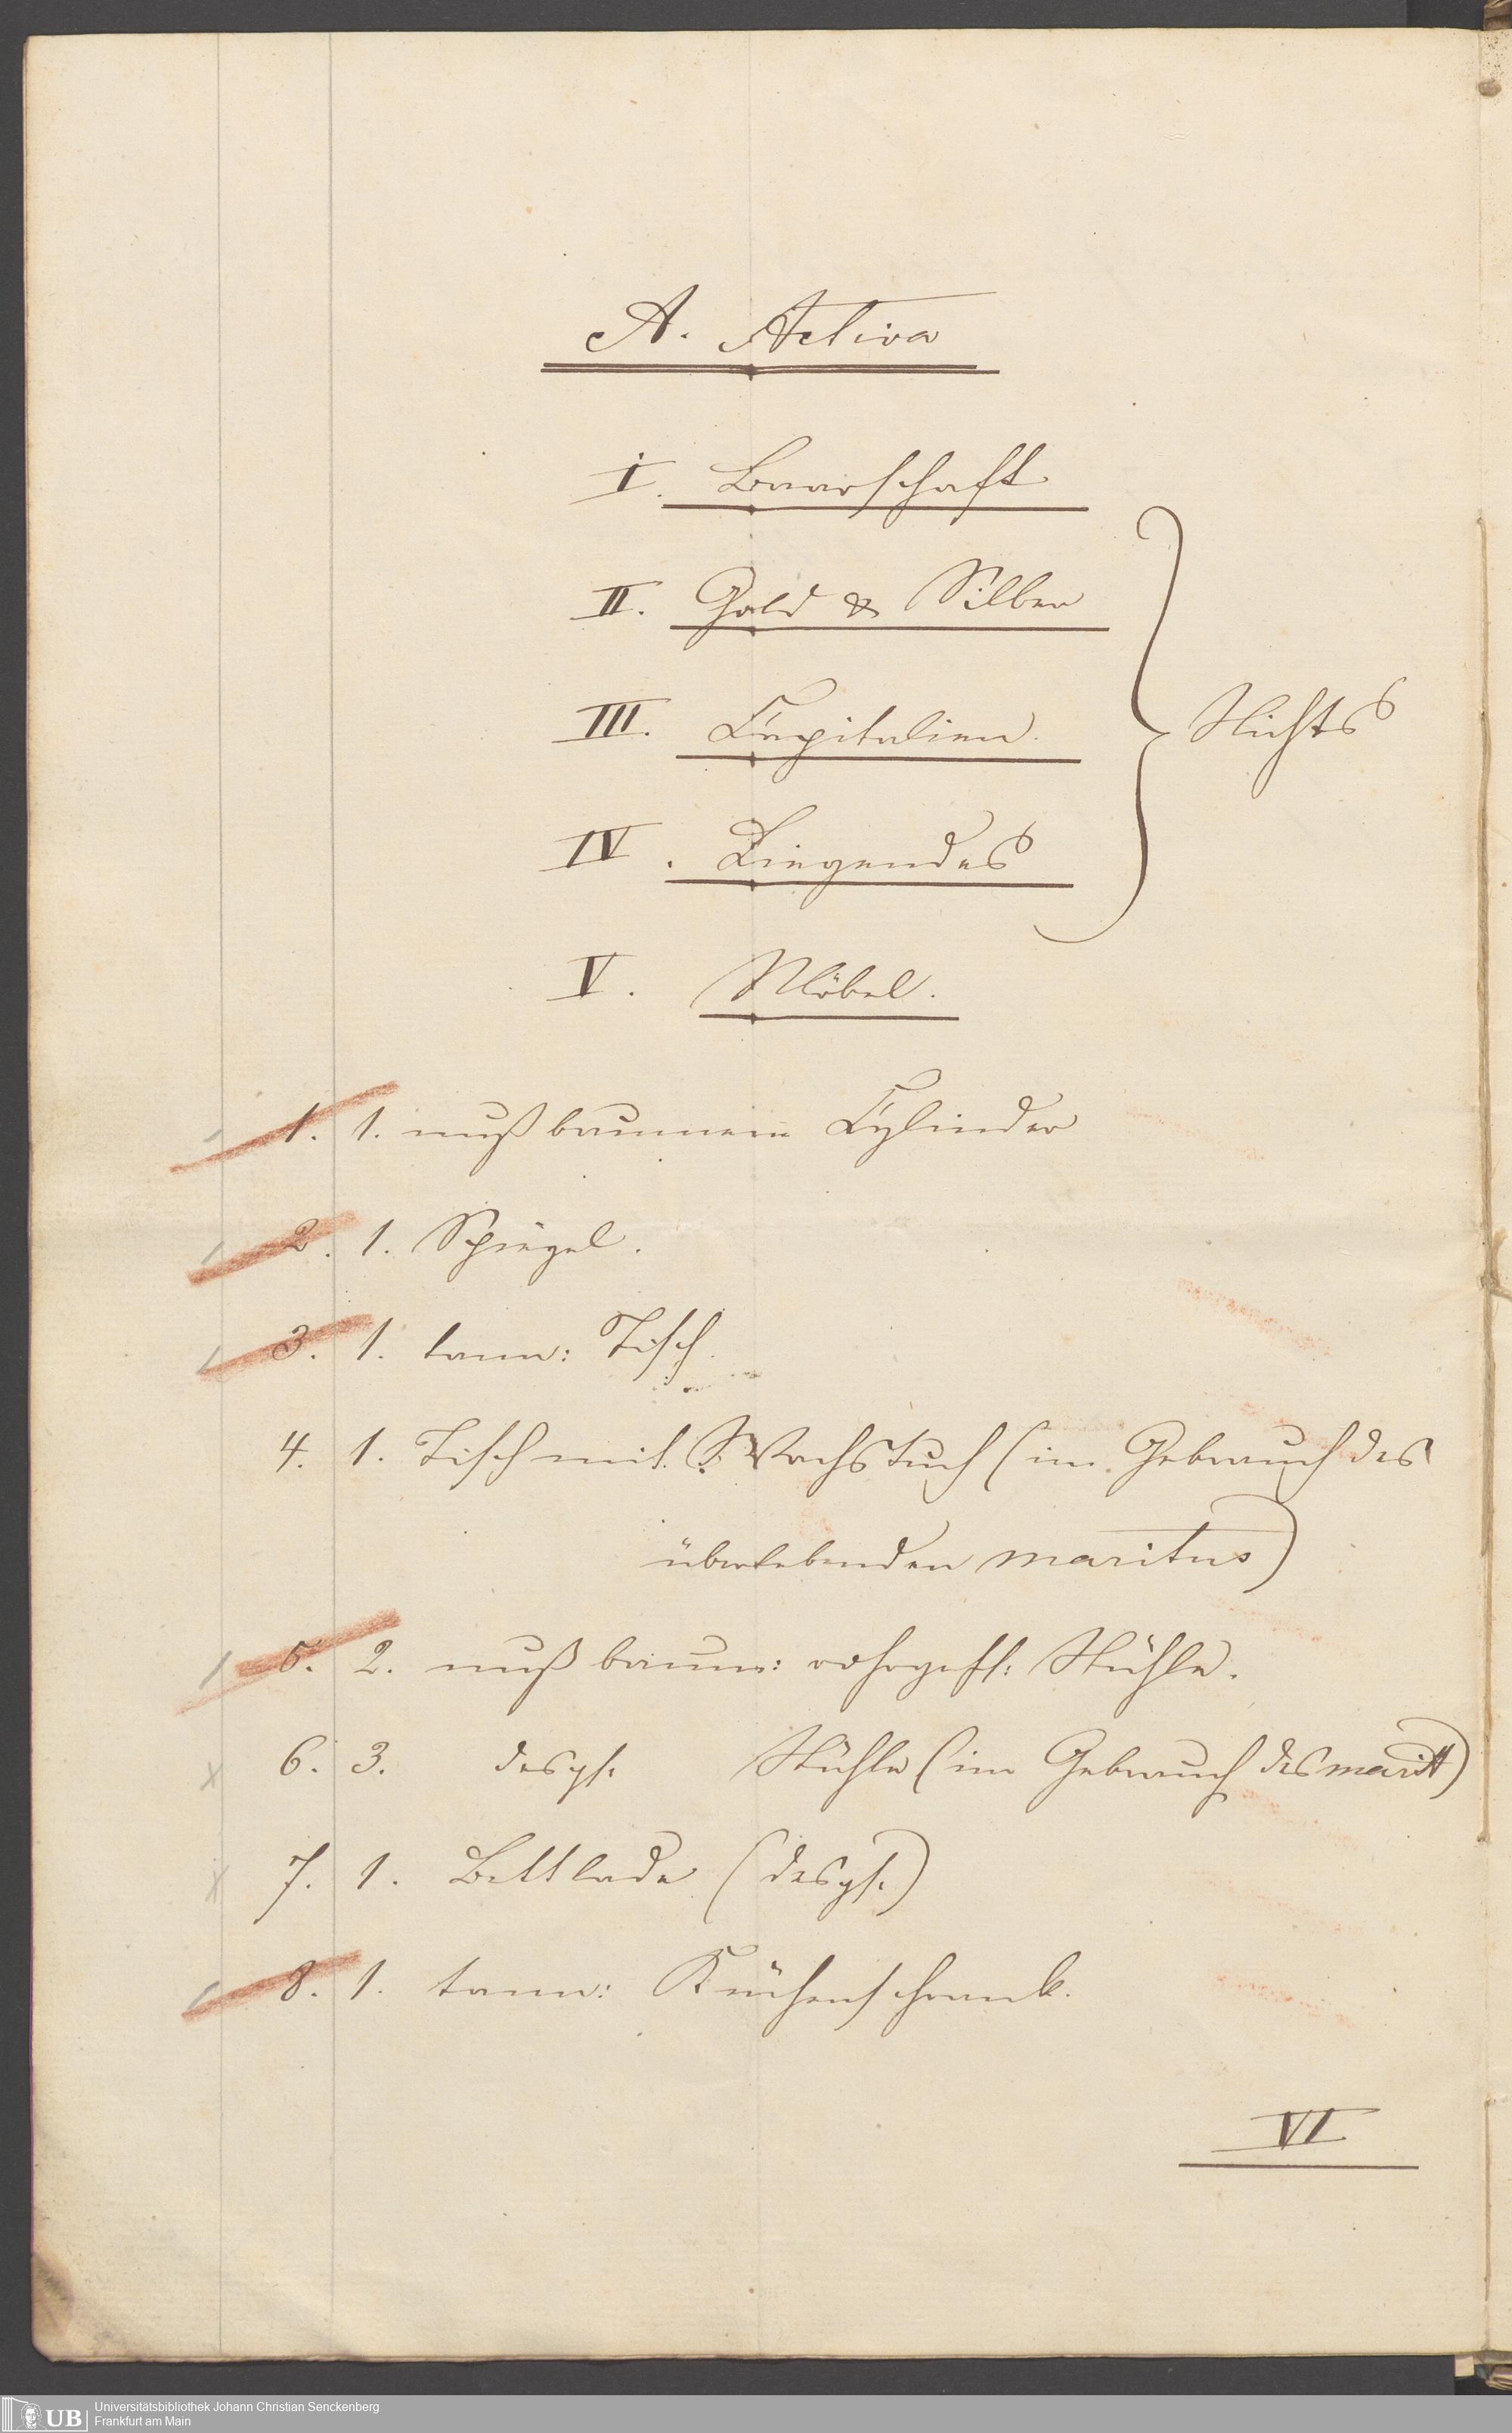 A. Activa
I. Baarschaft
II. Gold & Silber
III. Capitalien.
Nichts
IV. Liegendes
V. Möbel.
1. 1. nußbaumen Cylinder
2. 1. Spiegel.
3. 1. tann: Tisch.
4. 1. Tisch mit Wachstuch (im Gebrauch des
überlebenden maritus)
5. 2. nußbaum: rohrgefl: Stühle.
6. 3. desgl. Stühle (im Gebrauch des marit)
7. 1. Bettlade (desgl.)
8. 1. tann: Küchenschrank.
VI
UB
Universitätsbibliothek Johann Christian Senckenberg
Frankfurt am Main